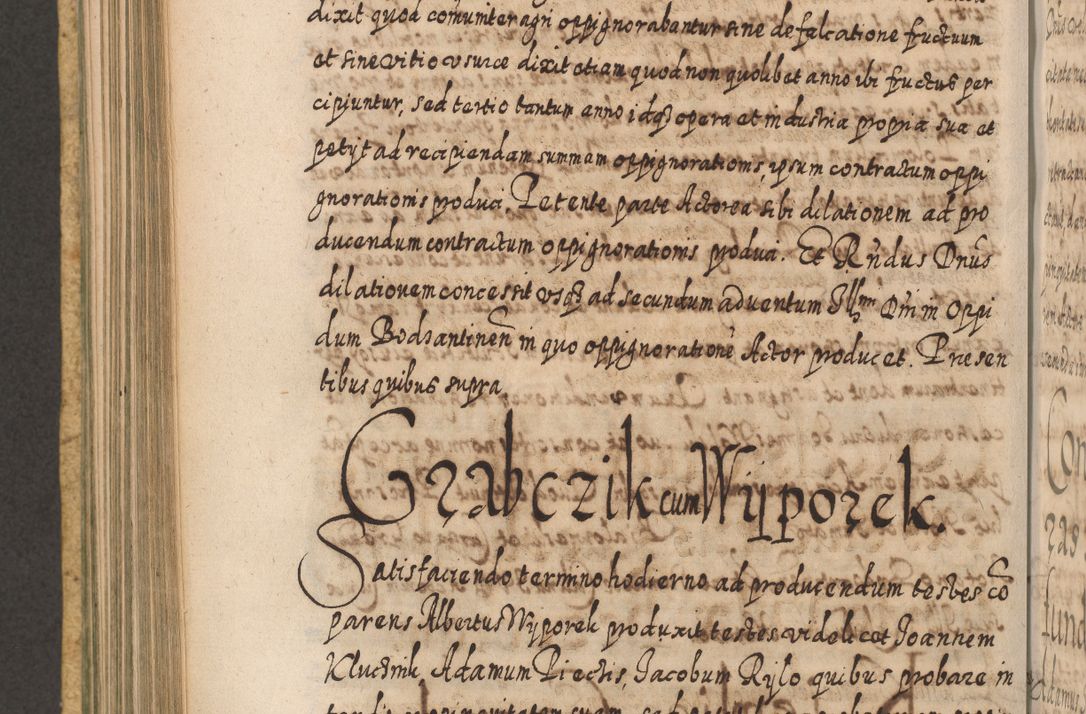 dixit quod com̄uniter agri oppignorabantur sine defalcatione fructuum
et sine vitio usurae dixit etiam quod non quolibet anno ibi fructus per
cipiuntur, sed tertio tantum anno idq3 opera et industria propria sua et
petijt ad recipiendam summam oppignorationis, ipsum contractum oppi
gnorationis produci. Petente parte Actorea sibi dilationem ad pro
ducendum contractum oppignorationis produci. Et Rn̄dus Dnus
dilationem concessit usq3 ad secundum adventum Illmi Dni in oppi
dum Bodzantinen̄ in quo oppignoratione Actor producet. Presen
tibus quibus supra
Grabczik cum Wÿporek.
Satisfaciendo termino hodierno ad producendum testes cō
parens Albertus Wÿporek produxit testes videlicet Joannem
Kluctnik, Adamum Piectis, Jacobum Rylo quibus probare in